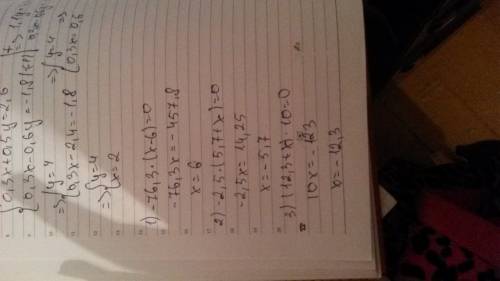 {0,3x+0,5y=2,6
{0,3x-0,6y=-1,8 |(-1)} + => 1,1y=
=> {y=4
{0,3x-2,4=-1,8 => {y=4
{0,3x=0,6 =>
=> {y=4
{x=2
1) -76,3·(x-6)=0
-76,3x=-457,8
x=6
2) -2,5·(5,7+x)=0
-2,5x=14,25
x=-5,7
3) (12,3+x)·10=0
10x=-123
x=-12,3